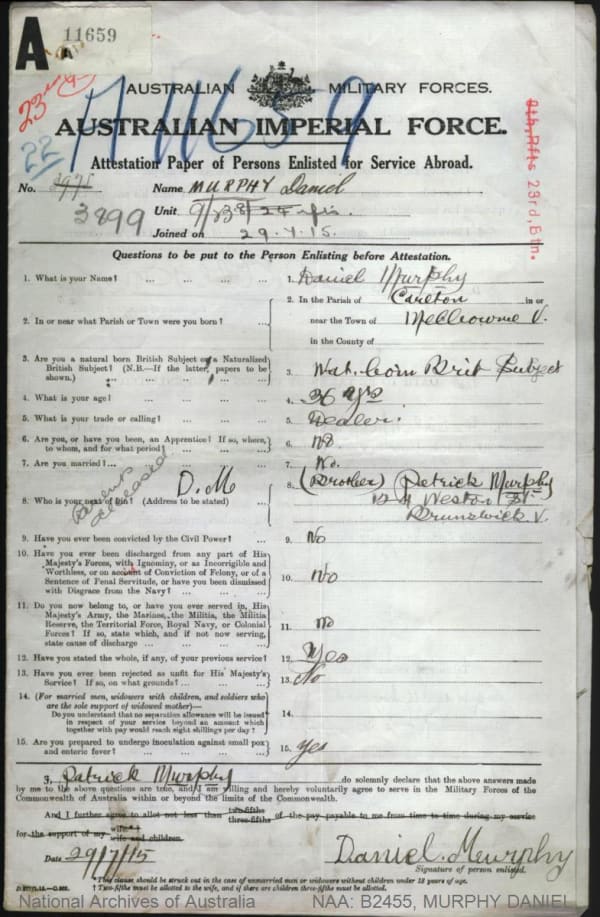 A 11659
23rd
A 11659
22
AUSTRALIAN MILITARY FORCES.
AUSTRALIAN IMPERIAL FORCE.
Attestation Paper of Persons Enlisted for Service Abroad.
8th, Rfts 23rd, Btn.
No. 3899 Name MURPHY Daniel
Unit
Joined on 29.7.15.
Questions to be put to the Person Enlisting before Attestation.
1. What is your Name? ... ... ... 1. Daniel Murphy
2. In or near what Parish or Town were you born? ... 2. In the Parish of Carlton in or
near the Town of Melbourne V.
in the County of
3. Are you a natural born British Subject or a Naturalized
British Subject? (N.B.—If the latter, papers to be
shown.) ... ... ... 3. Nat. born Brit Subject
4. What is your age? ... ... ... 4. 36 yrs
5. What is your trade or calling? ... ... ... 5. Dealer.
6. Are you, or have you been, an Apprentice? If so, where,
to whom, and for what period? ... ... ... 6. No.
7. Are you married? ... ... ... 7. No.
Parents deceased D.M
8. Who is your next of kin? (Address to be stated) ... 8. (Brother) Patrick Murphy
Weston St
Brunswick V.
9. Have you ever been convicted by the Civil Power? ... 9. No
10. Have you ever been discharged from any part of His
Majesty's Forces, with Ignominy, or as Incorrigible and
Worthless, or on account of Conviction of Felony, or of a
Sentence of Penal Servitude, or have you been dismissed
with Disgrace from the Navy? ... ... ... 10. No
11. Do you now belong to, or have you ever served in, His
Majesty's Army, the Marines, the Militia, the Militia
Reserve, the Territorial Force, Royal Navy, or Colonial
Forces? If so, state which, and if not now serving,
state cause of discharge ... ... ... 11. No
12. Have you stated the whole, if any, of your previous service? 12. Yes
13. Have you ever been rejected as unfit for His Majesty's
Service? If so, on what grounds? ... ... ... 13. No
14. (For married men, widowers with children, and soldiers who
are the sole support of widowed mother)—
Do you understand that no separation allowance will be issued
in respect of your service beyond an amount which
together with pay would reach eight shillings per day? 14.
15. Are you prepared to undergo inoculation against small pox
and enteric fever? ... ... ... 15. yes
I, Patrick Murphy do solemnly declare that the above answers made
by me to the above questions are true, and I am willing and hereby voluntarily agree to serve in the Military Forces of the
Commonwealth of Australia within or beyond the limits of the Commonwealth.
And I further agree to allot not less than two-fifths three-fifths of the pay payable to me from time to time during my service
for the support of my wife* wife and children.
Date 29/7/15 Daniel. Murphy
Signature of person enlisted.
*This clause should be struck out in the case of unmarried men or widowers without children under 18 years of age.
† Two-fifths must be allotted to the wife, and if there are children three-fifths must be allotted.
National Archives of Australia NAA: B2455, MURPHY DANIEL